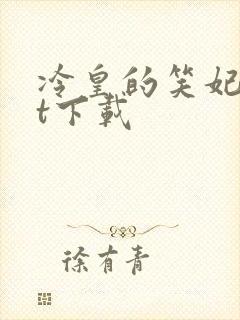 冷皇的笑妃
t下载
徐有青